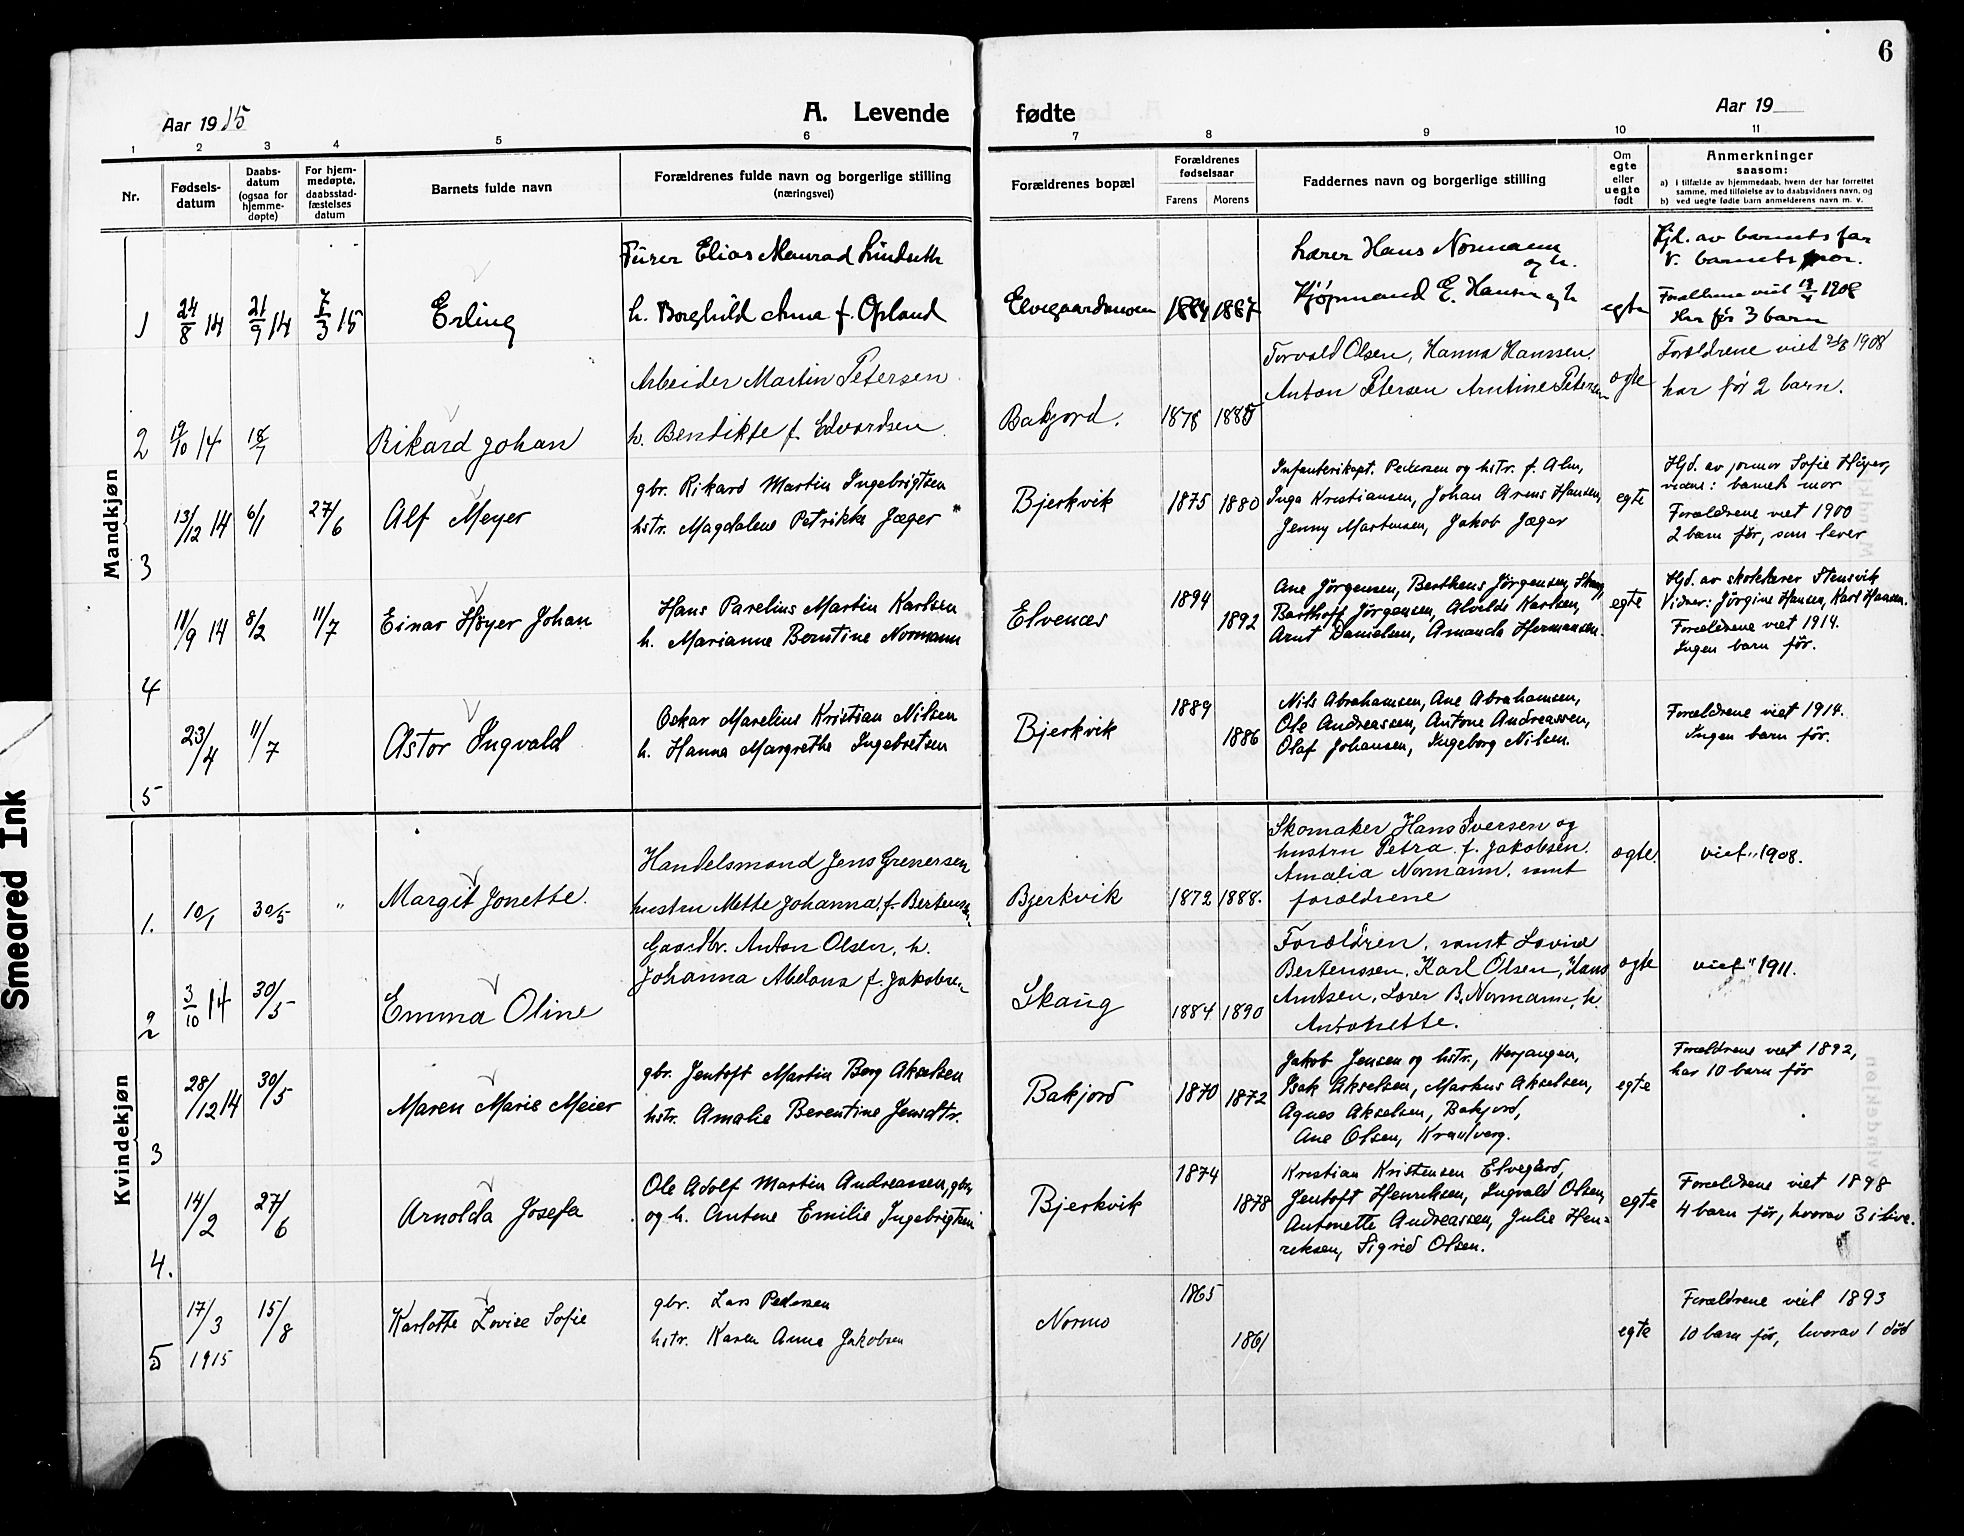 6
Aar 1915
A. Levende fødte
Aar 19
1 2 3 4 5 6 7 8 9 10 11
Nr.
Fødsels-
datum
Daabs-
datum
(ogsaa for
hjemme-
døpte)
For hjem-
medøpte,
daabsstad-
fæstelses
datum
Barnets fulde navn
Forældrenes fulde navn og borgerlige stilling
(næringsvei)
Forældrenes bopæl
Forældrenes
fødselsaar
Farens Morens
Faddernes navn og borgerlige stilling
Om
egte
eller
uegte
født
Anmerkninger
saasom:
a) i tilfælde av hjemmedaab, hvem der har forrettet
samme, med tilføielse av to daabsvidners navn, og
b) ved uegte fødte barn anmelderens navn m. v.
Mandkjøn
1
24/8 14
21/9 14
7/3 15
Erling
Furer Elias Menrad Lindseth
h. Borghild Anna f. Opland
Elvegaardsmoen
1884 1887
Lærer Hans Normann
og h.
Kjøpmand E. Hansen og h
egte
Hjd. av barnets far
v. barnets mor.
Forældrene viet 1908
Har før 3 barn
2
19/10 14
18/7
Rikard Johan
Arbeider Martin Petersen
h. Bendikte f. Edvardsen
Bakjord.
1878 1885
Torvald Olsen, Hanna Hanssen.
Anton Petersen Arntine Petersen
egte
Forældrene viet 1908
har før 2 barn.
3
13/12 14
6/1
27/6
Alf Meyer
gbr. Rikard Martin Ingebrigtsen
hstr. Magdalene Petrikke Jæger
Bjerkvik
1875 1880
Infanterikapt. Pedersen og hstr. f. Alm,
Inga Kristiansen, Johan Arens Hansen,
Jenny Martensen, Jakob Jæger
egte
Hjd. av jormor Sofie Høyer,
vidne: barnets mor
Forældrene viet 1900
2 barn før, som lever
4
11/9 14
8/2
11/7
Einar Høyer Johan
Hans Parelius Martin Karlsen
h. Marianne Berntine Normann
Elvenes
1894
1892
Ane Jørgensen, Berthens Jørgensen,
Barthoff Jørgensen, Alvilde Karlsen,
Arnt Danielsen, Amanda Hermansen.
egte
Hjd. av skolelærer Stensvik
Vidner: Jørgine Hansen, Karl Hansen.
Forældrene viet 1914.
Ingen barn før.
5
23/4
11/7
Astor Ingvald
Oskar Marelius Kristian Nilsen
h. Hanna Margrethe Ingebretsen
Bjerkvik
1889
1886
Nils Abrahamsen, Ane Abrahamsen,
Ole Andreassen, Antone Andreassen,
Olaf Johansen, Ingeborg Nilsen.
Forældrene viet 1914.
Ingen barn før.
Kvindekjøn
1.
10/1
30/5
"
Margit Jonette.
Handelsmand Jens Grenersen
hustru Mette Johanna f. Bertensen
Bjerkvik
1872 1888.
Skomaker Hans Iversen og
hustru Petra f. Jakobsen.
Amalia Normann. samt
forældrene
egte.
viet 1908.
2
3/10 14
30/5
Emma Oline
Gaardbr. Anton Olsen, h.
Johanna Abelona f. Jakobsen
Skaug
1884 1890
Forældren, samt Lovise
Bertenssen, Karl Olsen, Hans
Amtsen, Lærer B. Normann, h.
Antonette.
egte
viet 1911.
3
28/12 14
30/5
Maren Marie Meier
gbr. Jentoft Martin Berg Akselsen
hstr. Amalie Berentine Jensdtr.
Bakjord
1870 1872
Jakob Jensen og hstr., Herjangen,
Isak Akselsen, Markus Akselsen,
Agnes Akselsen, Bakjord,
Ane Olsen,
egte
Forældrene viet 1892,
har 10 barn før
4.
14/2
27/6
Arnolda Josefa
Ole Adolf Martin Andreassen, gbr,
og h. Antone Emilie Ingebrigtsen
Bjerkvik
1874
1878
Kristian Kristensen Elvegård,
Jentoft Henriksen, Ingvald Olsen,
Antonette Andreassen, Julie Hen=
riksen, Sigrid Olsen.
egte
Forældrene viet 1898
4 barn før, hvorav 3 i live.
5
17/3
1915
15/8
Karlotte Lovise Sofie
gbr. Lars Pedersen
hstr. Karen Anna Jakobsen
Normo
1865
1861
egte
Forældrene viet 1893
10 barn før, hvorav 1 død
Smeared Ink